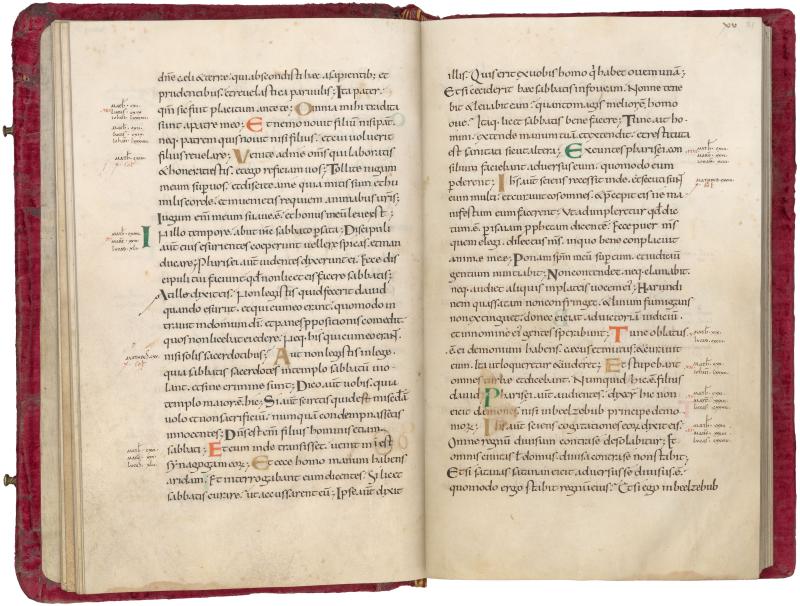 dñe cæli & terræ. quia abscondisti hæc a sapientib; et
prudentibus. et reuelasti ea paruulis; Ita pater.
qm̃ sic fuit placitum ante te; Omnia mihi tradita
sunt a patre meo; Et nemo nouit filiũ nisi pat̃.
neq; patrem quis nouit nisi filius. et cui uoluerit
filius reuelare; Venite ad me om̃s qui laboratis
& honerati estis. et ego reficiam uos; Tollite iugum
meum sup uos. et discite a me quia mitis sum et hu
milis corde. et inuenietis requiem animabus ur̃is;
Iugum em̃ meum suaue ẽ. et honus meum leue est;
In illo tempore. abiit ihs̃ sabbato p sata; Discipuli
aut̃ eius esurientes coeperunt uellere spicas. et man
ducare; Pharisei aut̃ uidentes dixerunt ei. Ecce dis
cipuli tui faciunt qđ non licet eis facere sabbatis;
At ille dixit eis. Non legistis quid fecerit dauid
quando esuriit. et qui cum eo erant. quomodo in
trauit in domum dĩ. et panes ppositionis comedit.
quos non licebat ei edere; Neq; his qui cum eo erant.
nisi solis sacerdotibus; Aut non legistis in lege.
quia sabbatis sacerdotes in templo sabbatũ uio
lant. et sine crimine sunt; Dico aut̃ uobis. quia
templo maior ẽ hic; Si aut̃ sciretis quid est misedĩa
uolo et non sacrificiũ. nunquã condempnassetis
innocentes; Dñs est em̃ filius hominis etiam
sabbati; Et cum inde transisset. uenit in
synagogam eorũ; Et ecce homo manum habens
aridam; Et interrogabant eum dicentes. Si licet
sabbatis curare. ut accusarent eũ; Ipse aut̃ dixit
xv
illis. Quis erit ex uobis homo q̃ habet ouem unã;
Et si ceciderit hæc sabbatis in foueam. Nonne tene
bit & leuabit eam. quanto magis melior ẽ homo
oue; Itaq; licet sabbatis bene facere; Tunc ait ho
mini. extende manum tuã et extendit. et restituta
est sanitati sicut altera; Exeuntes pharisei con
silium faciebant aduersus eum. quomodo eum
pderent; Ihs̃ aut̃ sciens recessit inde. et secuti sunt
eum multi. et curauit eos omnes. & p̃cepit eis ne ma
nifestum eum facerent; Vt adimpleretur qđ dic
tum ẽ. p isaiam ppħtam dicentẽ. Ecce puer m̃s
quem elegi. dilectus m̃s. in quo bene complacuit
animæ meæ; Ponam spm̃ meũ sup eum. et iudiciũ
gentium nuntiabit; Non contendet. neq; clamabit.
neq; audiet aliquis in plateis uocem ei; Harundi
nem quassatam non confringet. & linum fumigans
non extinguet. donec eiciat ad uictoriã iudiciũ.
et in nomine ei gentes sperabunt; Tunc oblatus
ẽ ei demonium habens. cæcus et mutus. & curauit
eum. ita ut loqueretur & uideret; Et stupebant
omnes turbæ et dicebant. Numquid hic ẽ filius
dauid; Pharisei aut̃ audientes. dixer̃ hic non
eicit demones. nisi in beelzebub principe demo
niorũ; Ihs̃ aut̃ sciens cogitationes eorũ. dixit eis.
Omne regnũ diuisum contra se desolabitur; Et
omnis ciuitas t domus. diuisa contra se non stabit;
Et si satanas satanan eicit. aduersus se diuisus ẽ.
quomodo ergo stabit regnũ eius. Et si ego in beelzebub